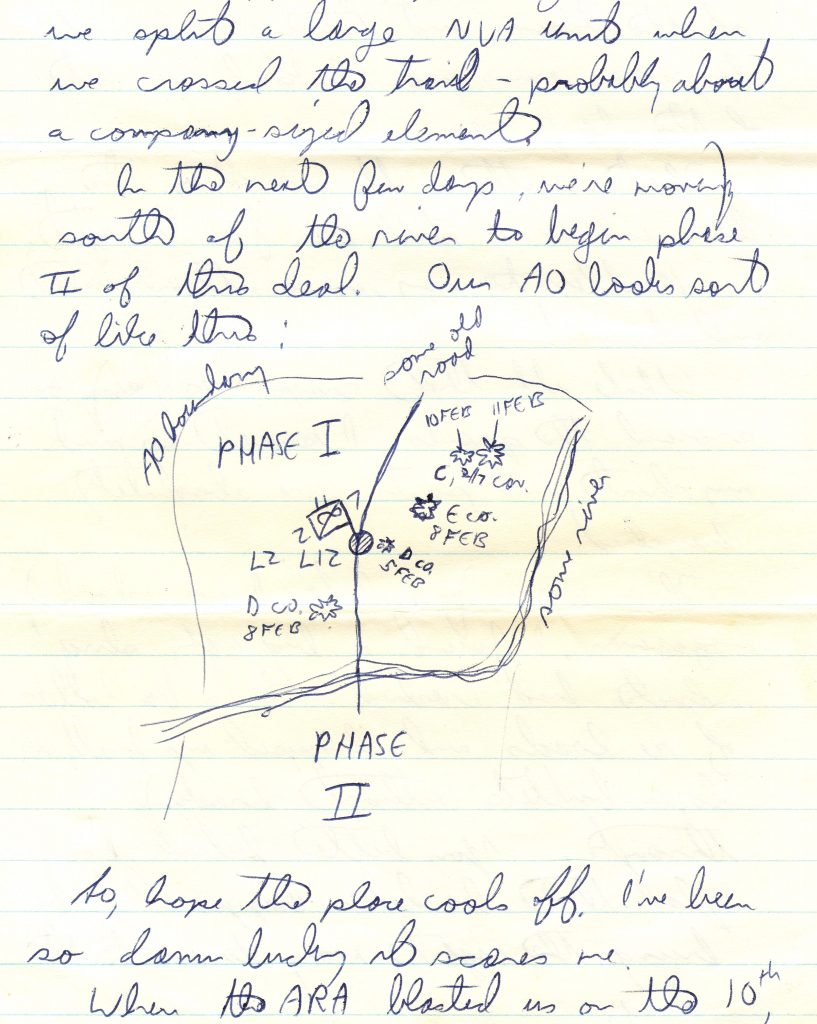 we split a large NVA unit when
we crossed the trail - probably about
a company-sized element.
In the next few days, we're moving
south of the river to begin phase
II of this deal. Our AO looks sort
of like this:
some old
road
AO boundary
10 FEB
11 FEB
PHASE I
C, 2/7 Cav.
E CO.
8 FEB
2
7
LZ
D CO.
5 FEB
D CO.
8 FEB
some river
PHASE
II
So, hope the place cools off. I've been
so damn lucky it scares me.
When the ARA blasted us on the 10th,